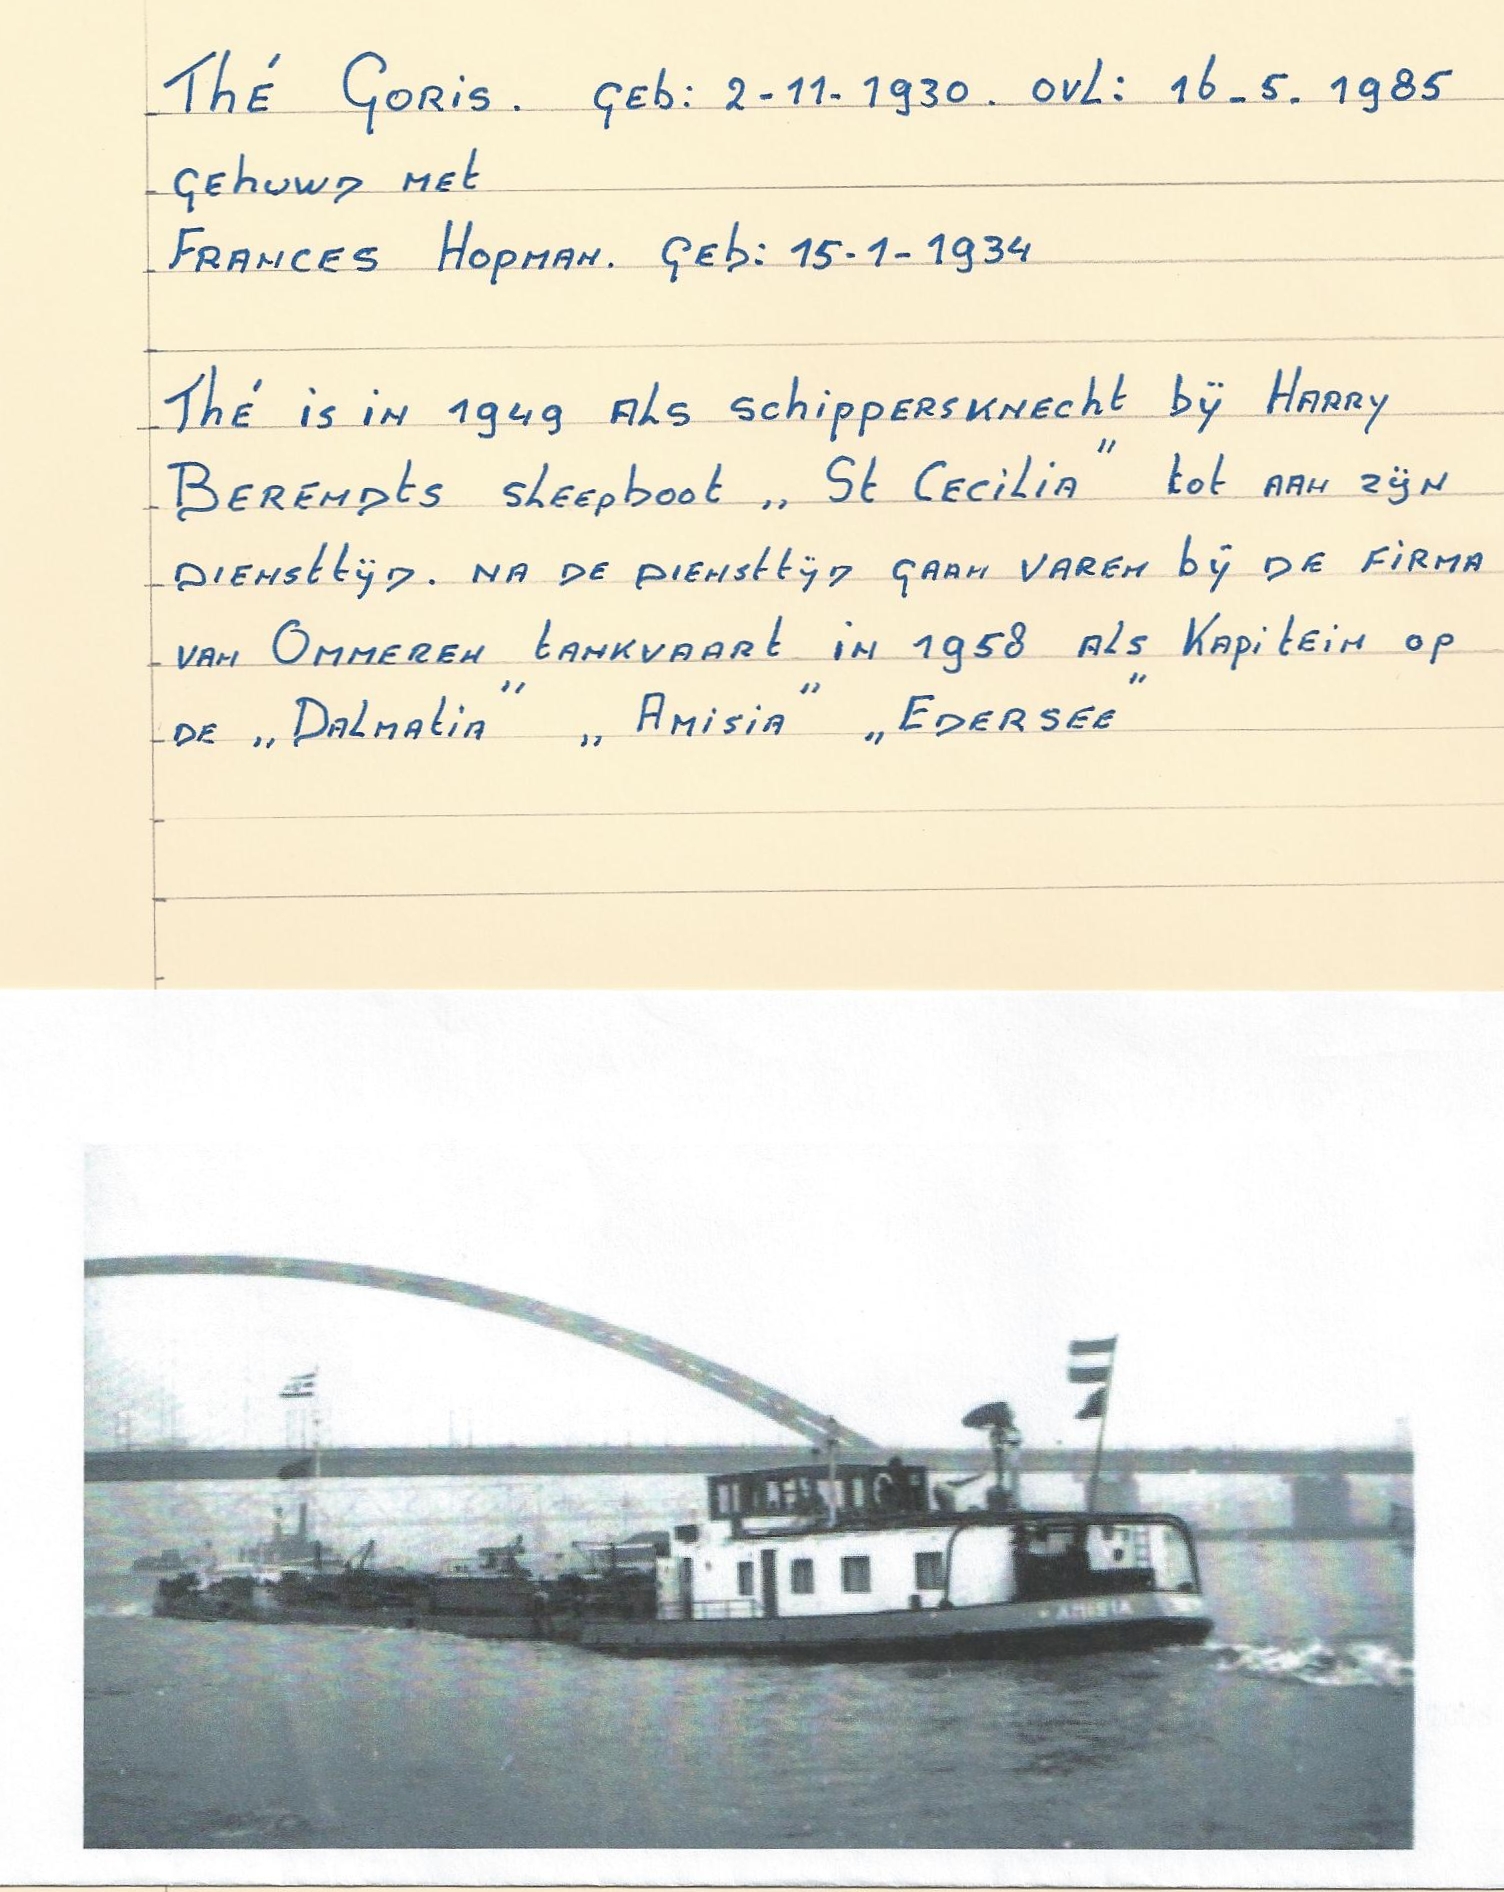 Thé Goris. geb: 2-11-1930. ovl: 16-5-1985
gehuwd met
Frances Hopman. geb: 15-1-1934
Thé is in 1949 als schippersknecht bij Harry
Berendts sleepboot „St Cecilia" tot aan zijn
diensttijd. na de diensttijd gaan varen bij de firma
van Ommeren tankvaart in 1958 als Kapitein op
de „Dalmatia" „Amisia" „Edersee"
AMISIA